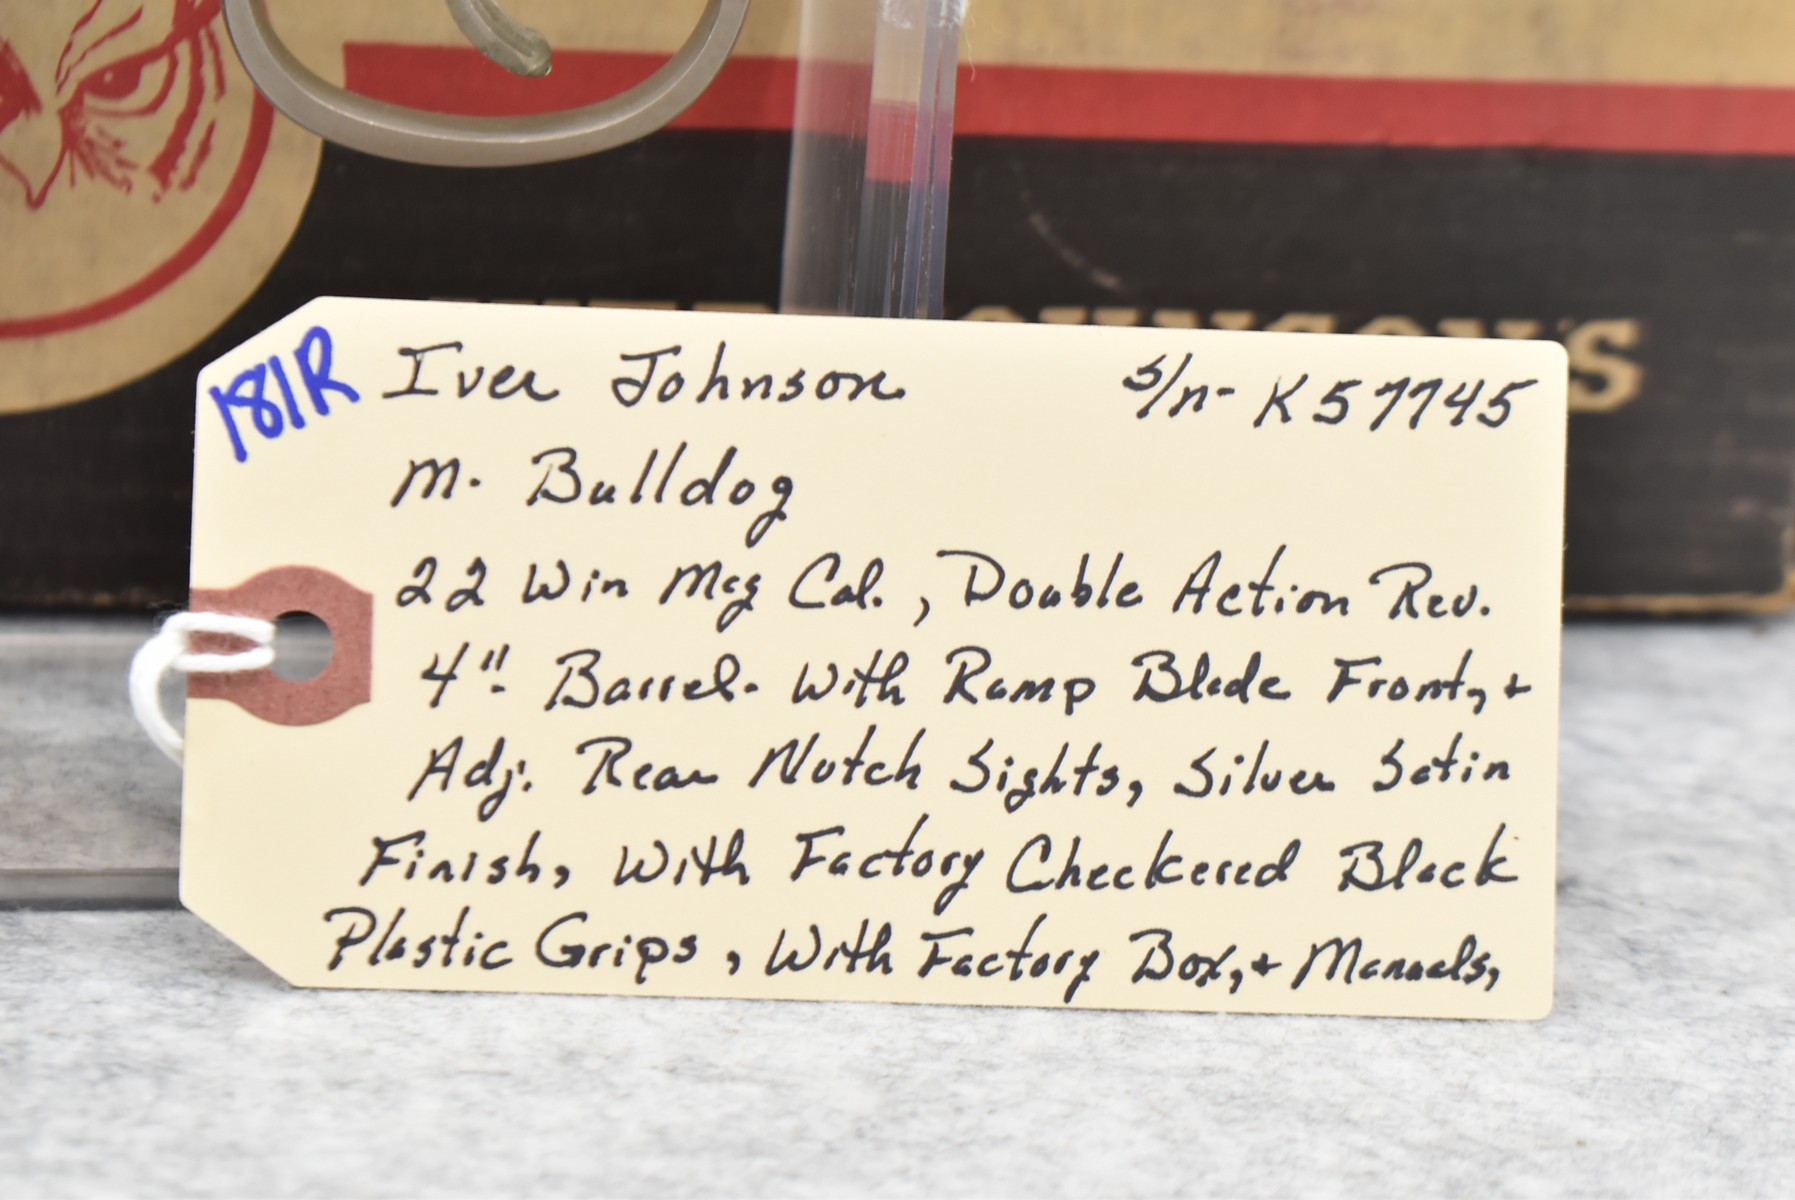 181R
Iver Johnson s/n- K57745
M. Bulldog
22 Win Mag Cal., Double Action Rev.
4". Barrel. With Ramp Blade Front, +
Adj. Rear Notch Sights, Silver Satin
Finish, With Factory Checkered Black
Plastic Grips, With Factory Box, + Manuals,